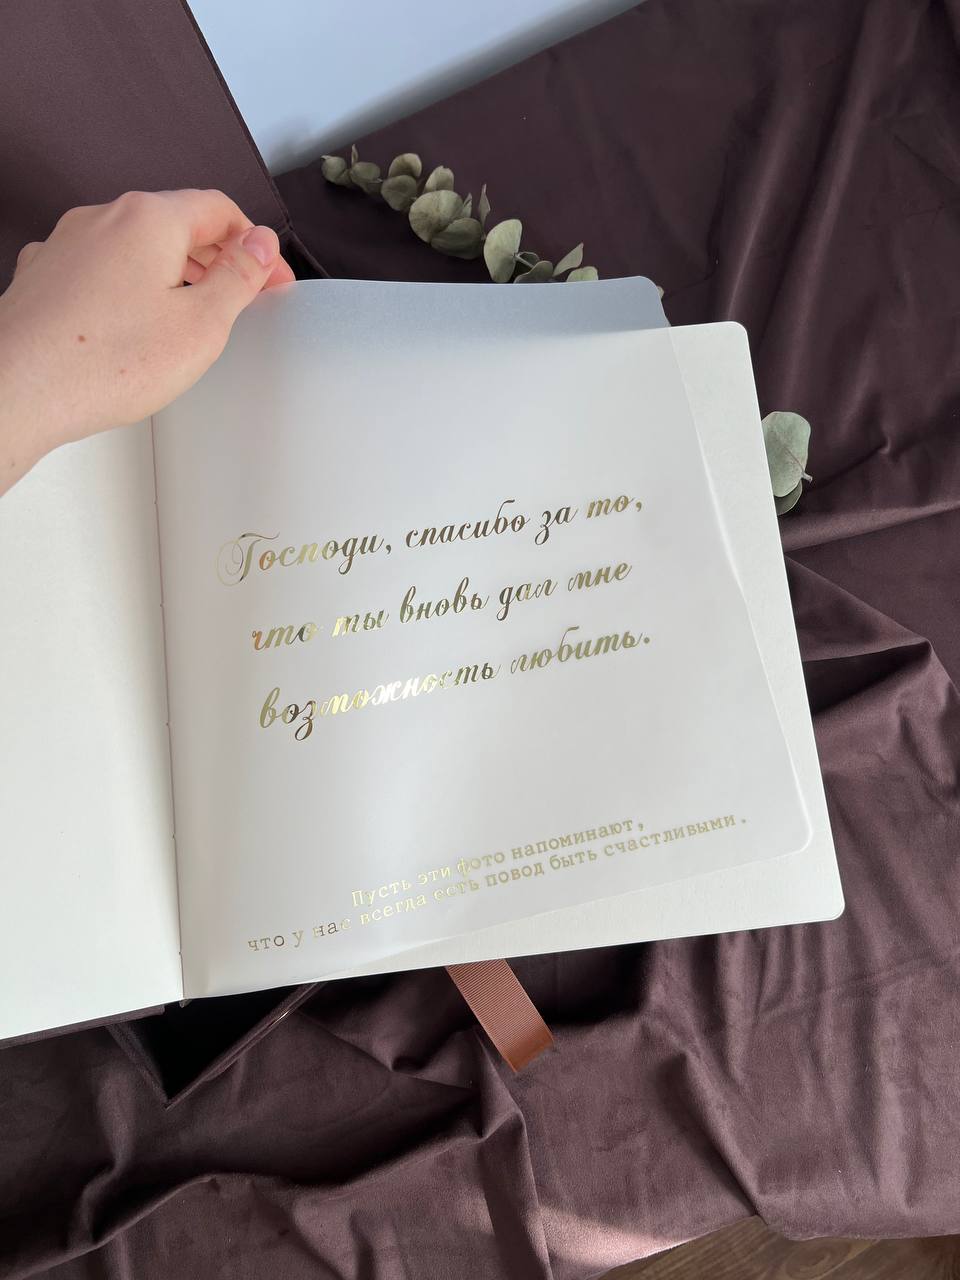 Господи, спасибо за то,
что ты вновь дал мне
возможность любить.
Пусть эти фото напоминают,
что у нас всегда есть повод быть счастливыми.